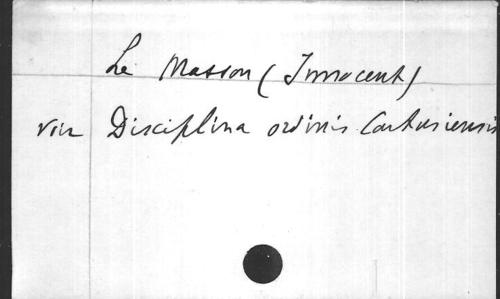 Le Masson (Innocent)
voir Disciplina ordinis Cartusiensis